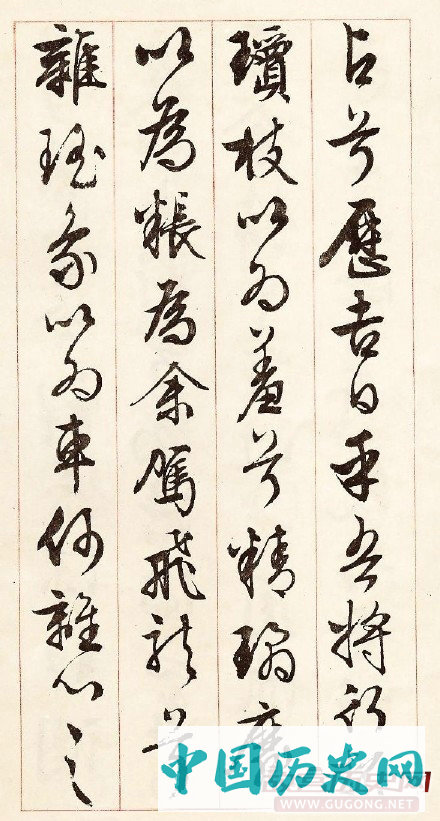 占兮歷吉日乎吾將行
瓊枝以為羞兮精瓊
以為粻為余駕飛龍兮
雜瑤象以為車何離心之
中国历史网
WWW.GUGONG.NET